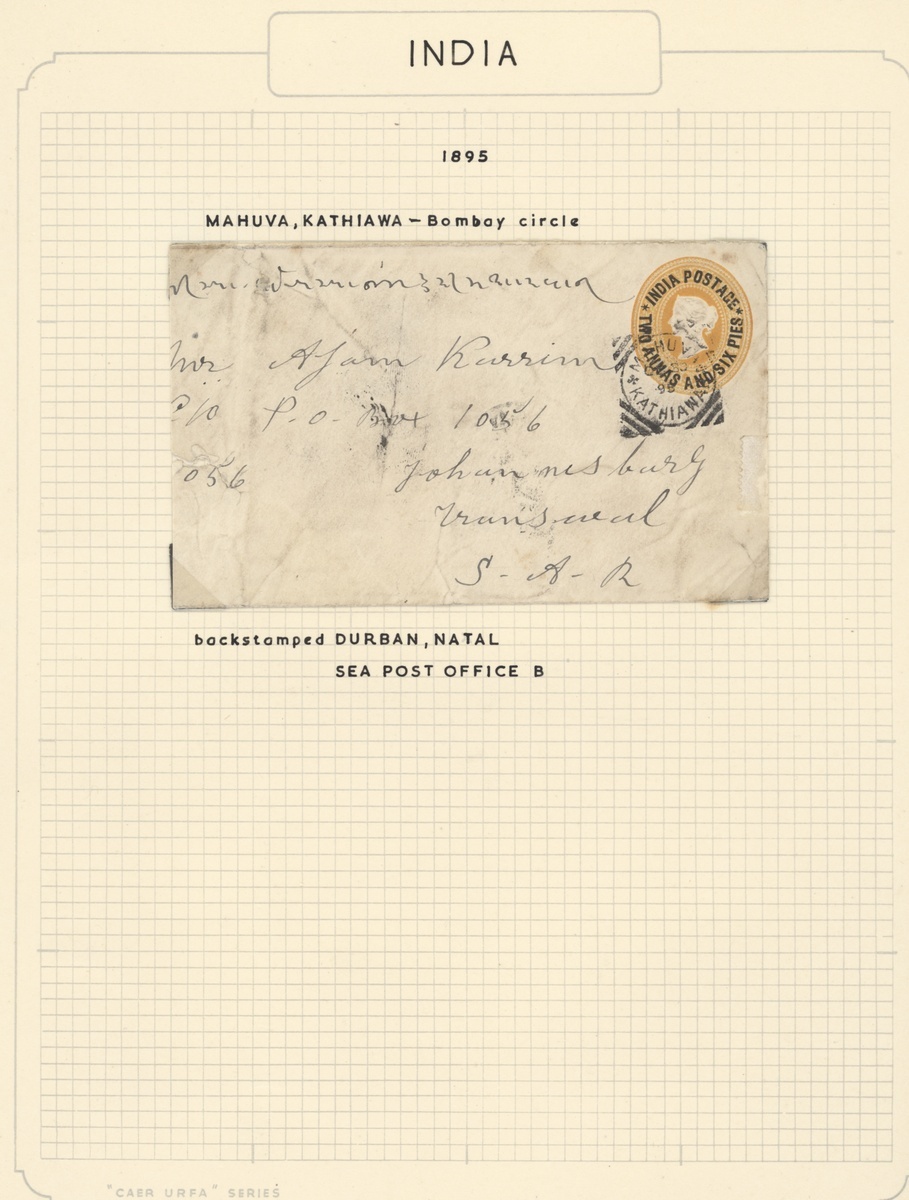 INDIA
1895
MAHUVA, KATHIAWA – Bombay circle
INDIA POSTAGE
TWO ANNAS AND SIX PIES
KATHIAWA
Ajam Karrim
C/o P.O. Box 1056
056 Johannesburg
Transvaal
S-A-R
backstamped DURBAN, NATAL
SEA POST OFFICE B
"CAER URFA" SERIES